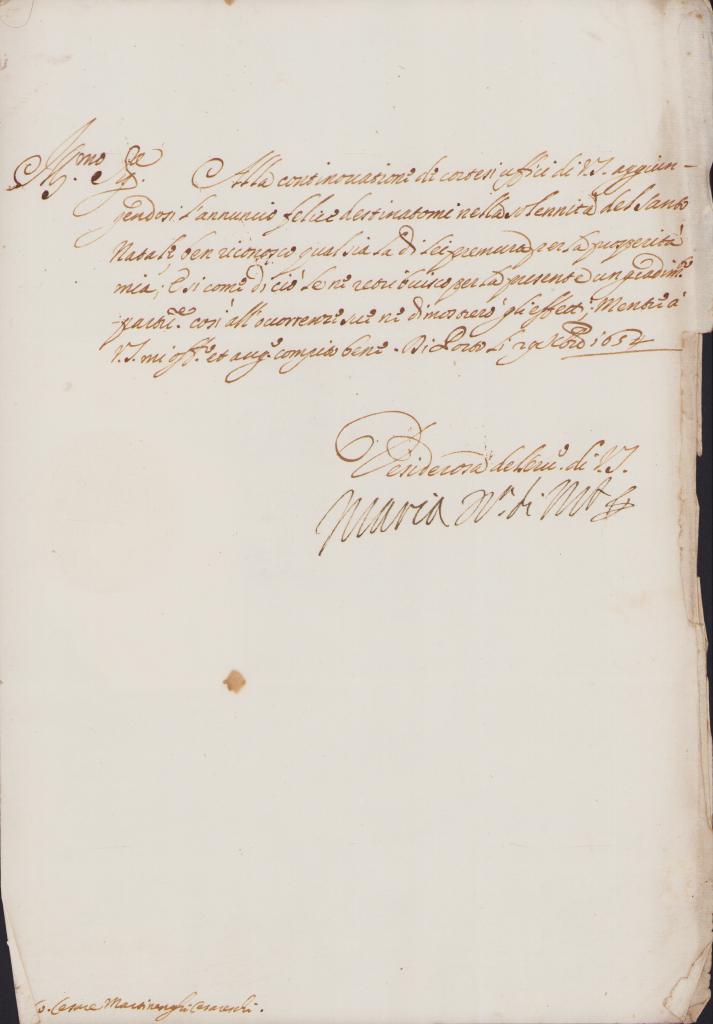 Ill.mo Sig.re Alla continovatione de cortesi uffici di V.S. aggiun-
gendosi l'annuncio felice destinatomi nella solennità del Santo
Natale ben riconosco qual sia la di lei premura per la prosperità
mia; E si come di ciò le ne retribuisco per la presente un gradim.to
partic.e così all'occorrenze sue ne dimostrerò gli effetti; Mentre à
V.S. mi off.o et aug.o compito bene. Di li 29 Xbro 1654
Desiderosa del ser.o di V.S.
Maria
Co. Cesare Martinenghi Cesareschi.